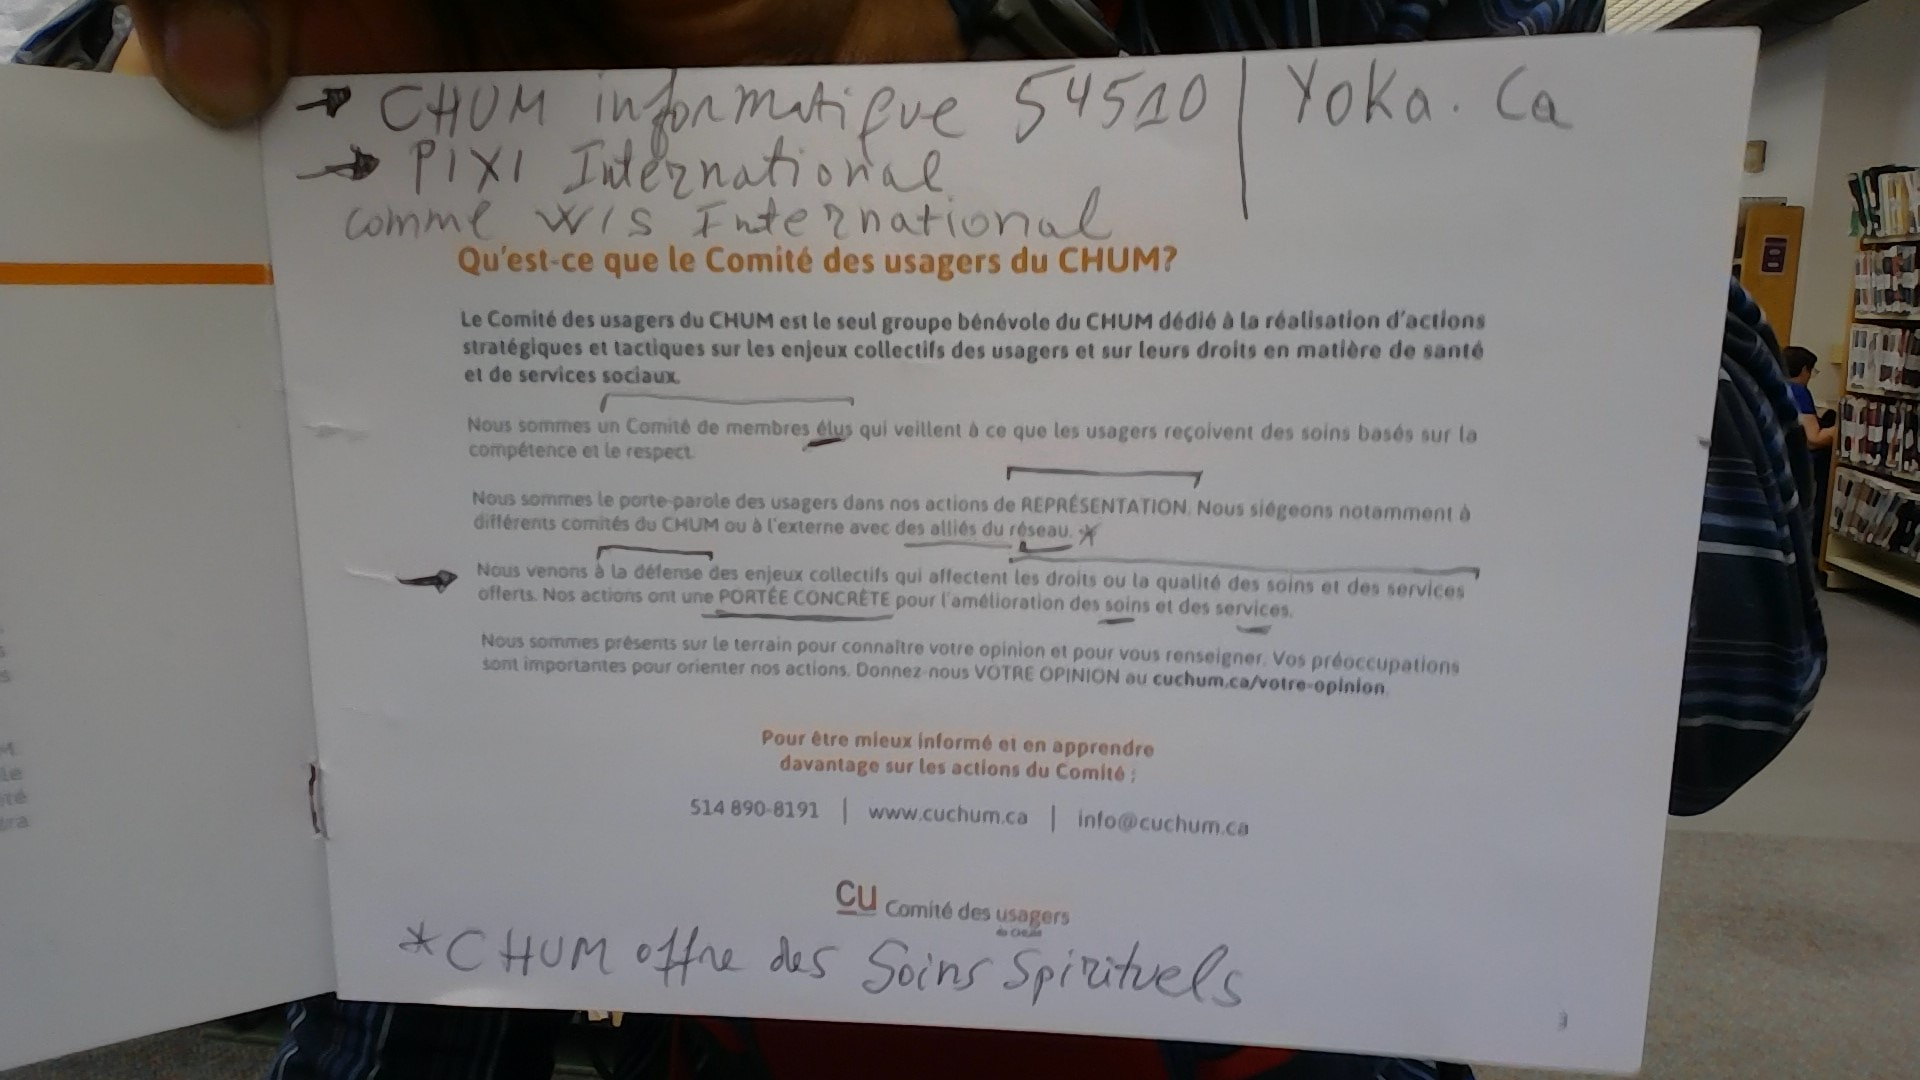 → CHUM informatique 54510 | Yoka.Ca
→ PIXI International
comme WIS International
Qu'est-ce que le Comité des usagers du CHUM?
Le Comité des usagers du CHUM est le seul groupe bénévole du CHUM dédié à la réalisation d'actions
stratégiques et tactiques sur les enjeux collectifs des usagers et sur leurs droits en matière de santé
et de services sociaux.
Nous sommes un Comité de membres élus qui veillent à ce que les usagers reçoivent des soins basés sur la
compétence et le respect.
Nous sommes le porte-parole des usagers dans nos actions de REPRÉSENTATION. Nous siégeons notamment à
différents comités du CHUM ou à l'externe avec des alliés du réseau. *
Nous venons à la défense des enjeux collectifs qui affectent les droits ou la qualité des soins et des services
offerts. Nos actions ont une PORTÉE CONCRÈTE pour l'amélioration des soins et des services.
Nous sommes présents sur le terrain pour connaître votre opinion et pour vous renseigner. Vos préoccupations
sont importantes pour orienter nos actions. Donnez-nous VOTRE OPINION au cuchum.ca/votre-opinion.
Pour être mieux informé et en apprendre
davantage sur les actions du Comité :
514 890-8191 | www.cuchum.ca | info@cuchum.ca
CU Comité des usagers
du CHUM
* CHUM offre des Soins Spirituels
3